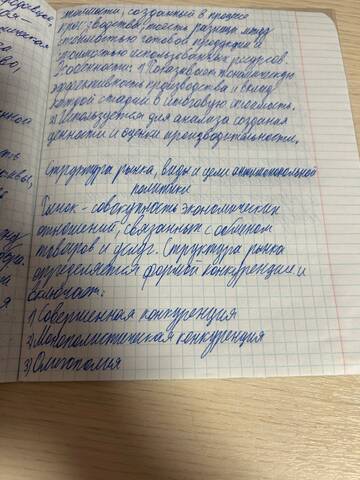 стоимости, созданный в процессе
производства, то есть разница между
стоимостью готовой продукции и
стоимостью использованных ресурсов.
Особенности: 1) Показывает экономическую
эффективность производства и вклад
каждой стадии в итоговую стоимость.
2) Используется для анализа создания
ценности и оценки производительности.
Структура рынка, виды и цели антимонопольной
политики
Рынок - совокупность экономических
отношений, связанных с обменом
товаров и услуг. Структура рынка
определяется формой конкуренции и
включает:
1) Совершенная конкуренция
2) Монополистическая конкуренция
3) Олигополия